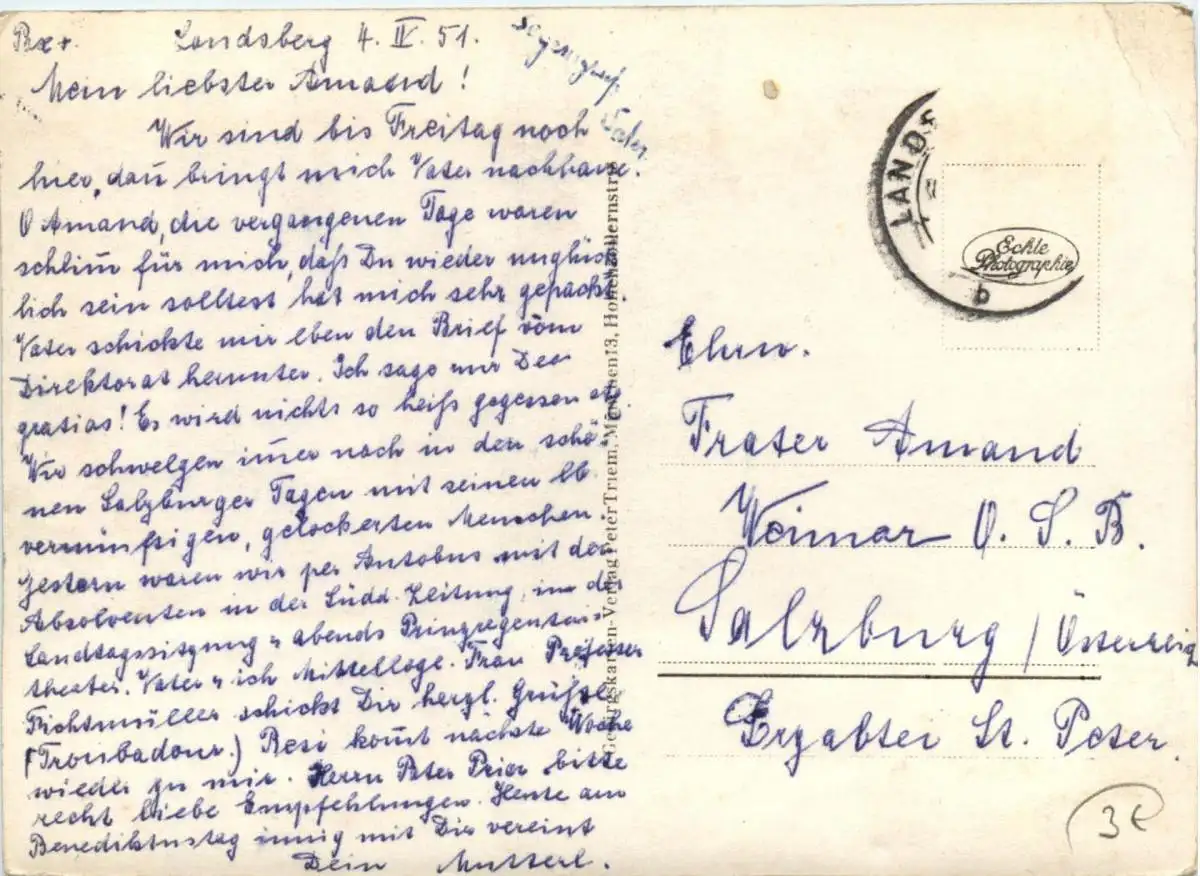 Pax+.
Landsberg 4. IV. 51.
Mein liebster Amand!
Wir sind bis Freitag noch
hier, dañ bringt mich Vater nachhause.
O Amand, die vergangenen Tage waren
schlim̄ für mich, daß Du wieder unglück
lich sein solltest hat mich sehr gepackt.
Vater schickte mir eben den Brief vom
Direktorat herunter. Ich sage nur Deo
gratias! Es wird nichts so heiß gegessen etc
Wir schwelgen im̄er noch in den schö-
nen Salzburger Tagen mit seinen lb.
vernünftigen, gelockerten Menschen.
Gestern waren wir per Autobus mit den
Absolventen in der Südd. Zeitung, in d.
Landtagssitzung u abends Prinzregenten
theater. Vater u ich Mittelloge. Frau Professer
Fichtmüller schickt Dir herzl. Grüße
(Troubadour.) Resi kom̄t nächste Woche
wieder zu mir. Herrn Pater Prior bitte
recht liebe Empfehlungen. Heute am
Benediktustag innig mit Dir vereint
Dein Mutterl.
Vater.
Georgskarten-Verlag Peter Triem, München 13, Hohenzollernstr.
LANDS
b
Eckle
Photographie
Ehrw.
Frater Amand
Weimar O. S. B.
Salzburg / Österreich
Erzabtei St. Peter.
3€